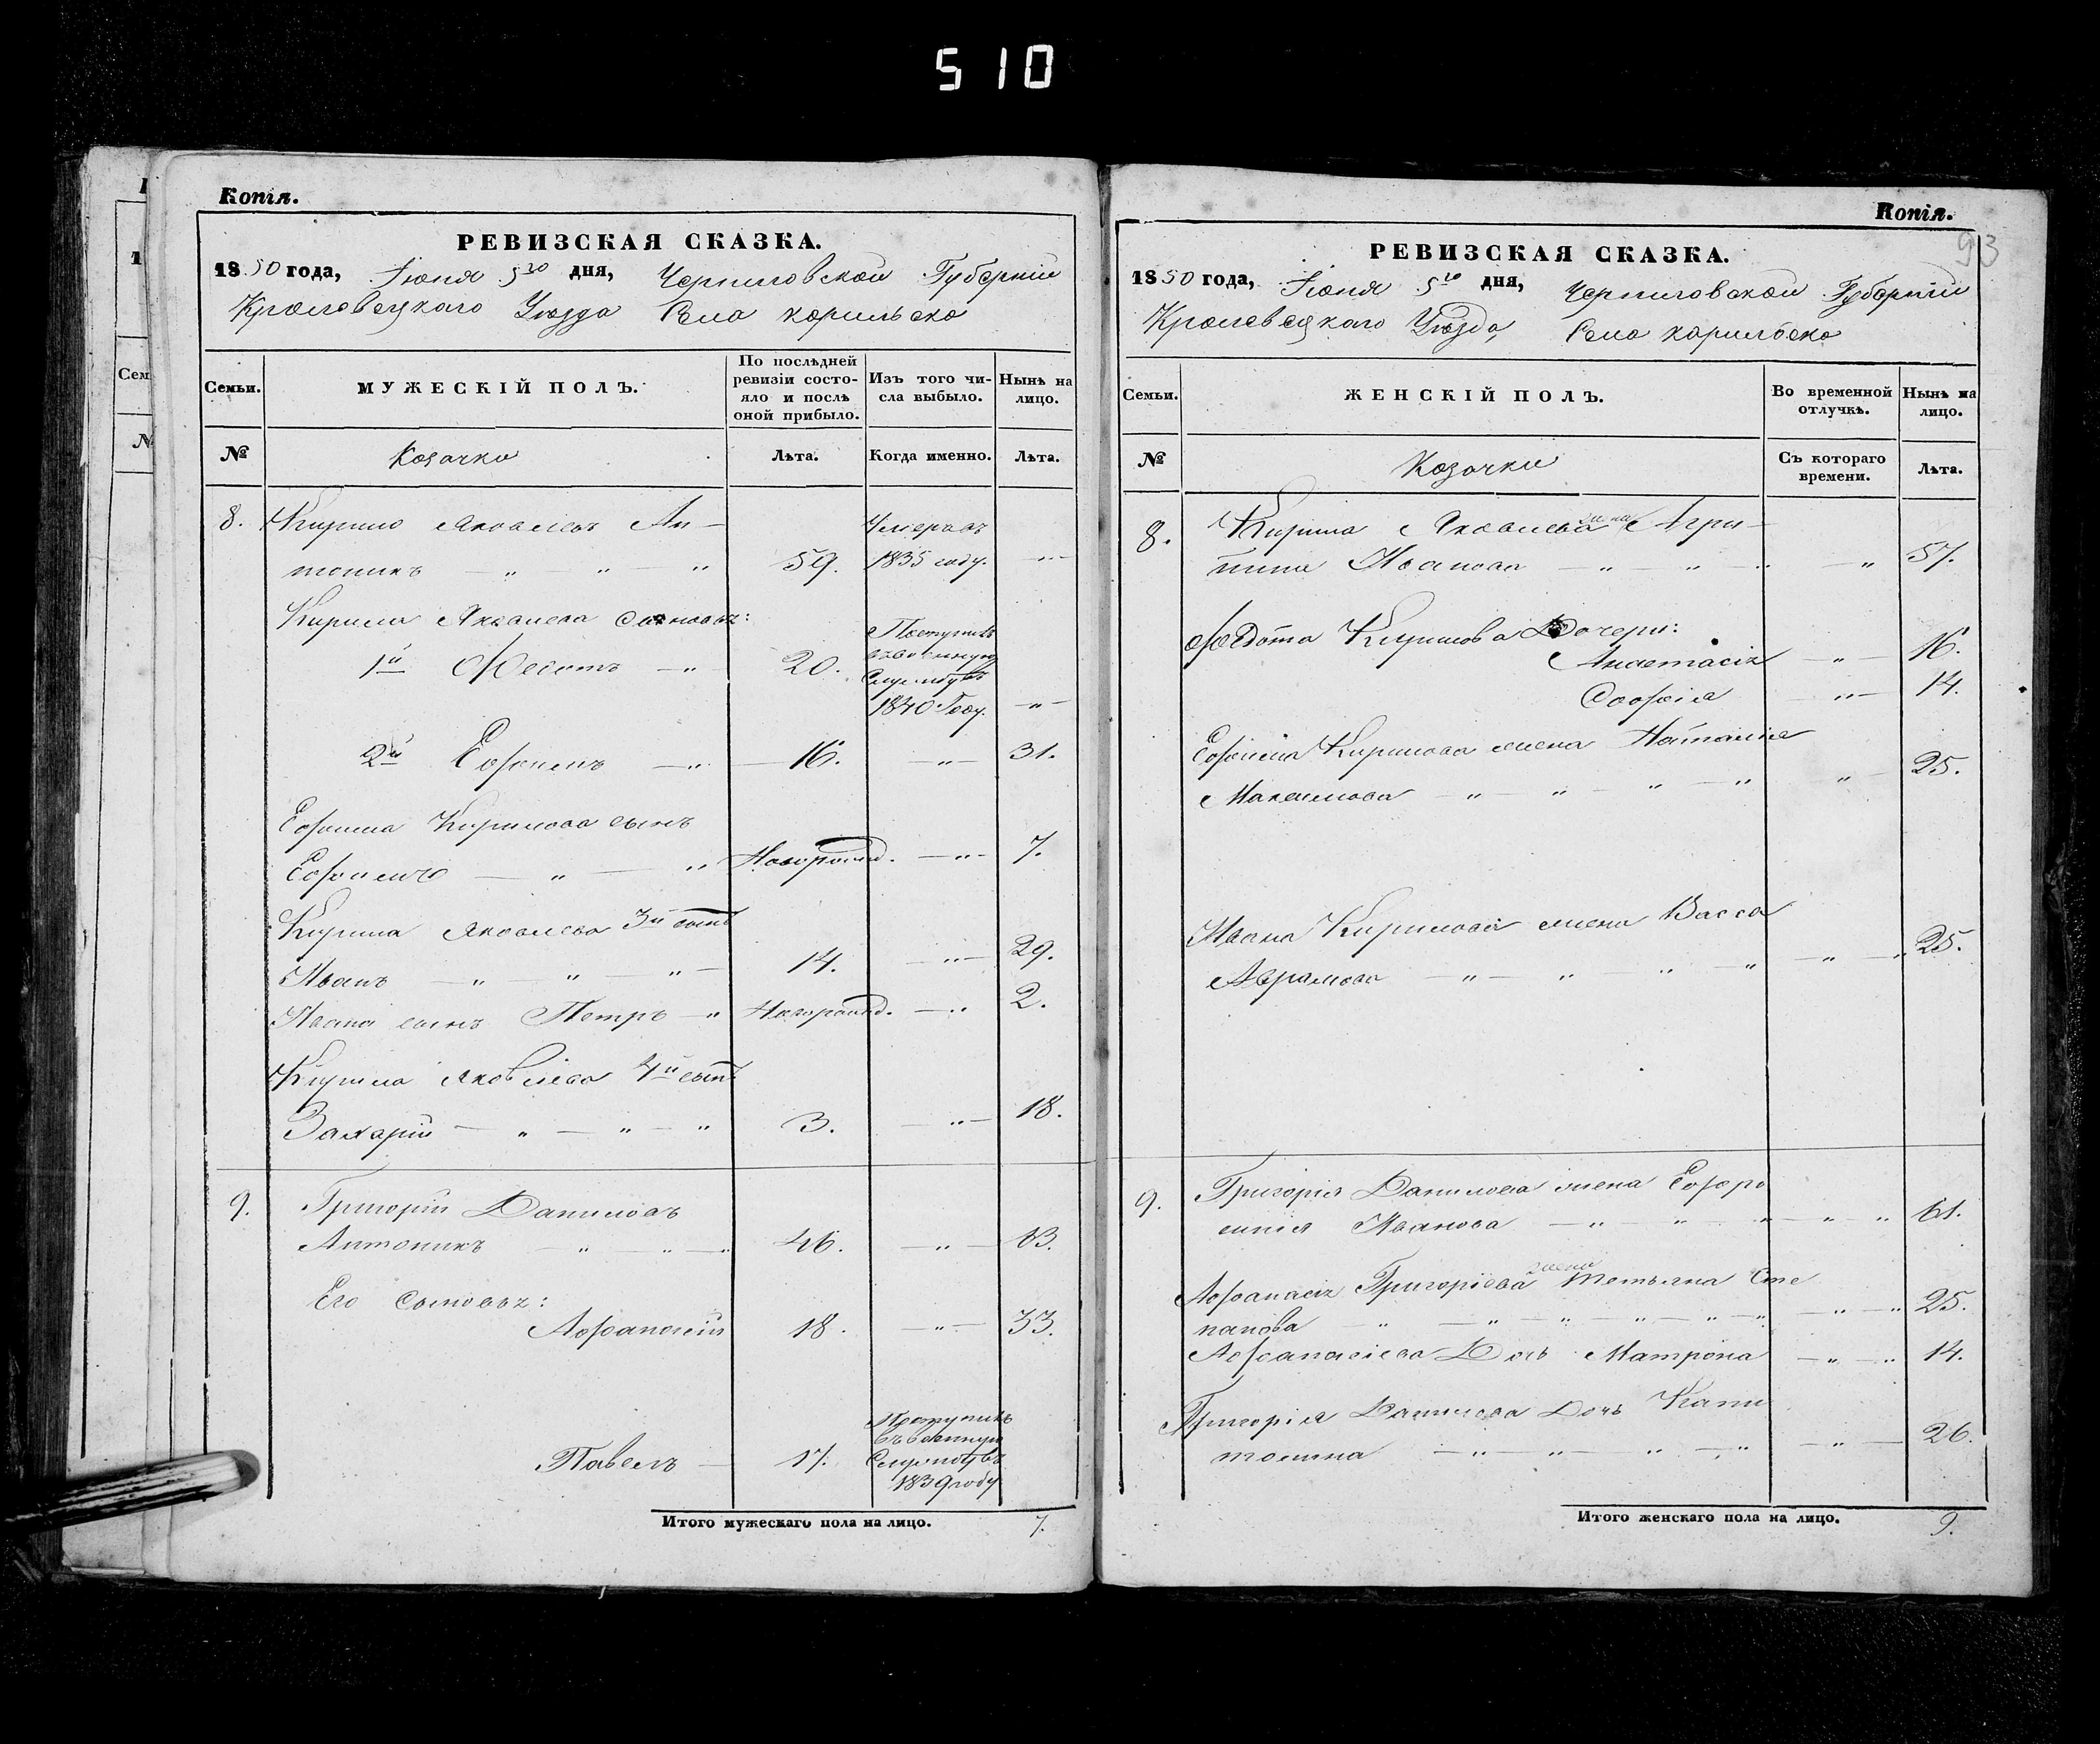 510
Копія.
РЕВИЗСКАЯ СКАЗКА.
1850 года, Іюня 5го дня, Черниговской Губерніи
Кролевецкаго Уѣзда Села корильско
Семьи.
МУЖЕСКІЙ ПОЛЪ.
По послѣдней ревизіи состо-
яло и послѣ оной прибыло.
Изъ того чи-
сла выбыло.
Нынѣ на
лицо.
№
Козачки
Лѣта.
Когда именно.
Лѣта.
8. Кирило Яковлевъ Ан-
тоникъ — " — " — " 59. Умеръ въ 1835 году. — " —
Кирила Яковлева сыновья:
1й Федотъ — " 20. Поступилъ
въ военную
Службу въ
1840 Году. — " —
2й Ефимъ — " — 16. — " — 31.
Ефима Кирилова сынъ
Ефимъ — " — " Новорожд. — " — 7.
Кирила Яковлева 3й сынъ
Иванъ — " — " — " — 14. — " — 29.
Ивана сынъ Петръ — " Новорожд. — " 2.
Кирила Яковлева 4й сынъ
Захарій — " — " — " 3. — " — 18.
9. Григорій Даниловъ
Антоникъ — " — " — " 46. — " —
Его сыновья:
Афанасій 18. — " — 33.
Павелъ — 17. Поступилъ
въ военную
Службу въ
1839 году
Итого мужескаго пола на лицо. 7.
Копія.
93
РЕВИЗСКАЯ СКАЗКА.
1850 года, Іюня 5го дня, Черниговской Губерніи
Кролевецкаго Уѣзда, Села корильско
Семьи.
ЖЕНСКІЙ ПОЛЪ.
Во временной
отлучкѣ.
Нынѣ на
лицо.
№
Козочки
Съ котораго
времени.
Лѣта.
8. Кирила Яковлева жена Агри-
пина Иванова — " — " — " — " 57.
Федота Кирилова Дочери:
Анастасія — " — 16.
Софія — " — 14.
Ефима Кирилова жена Наталія
Максимова — " — " — " — " " — 25.
Ивана Кирилова жена Васса
Аврамова — " — " " " — " — " 25.
9. Григорія Данилова жена Ефро
синія Иванова — " — " — " — " " 61.
Афанасія Григоріева жена Тетьяна Сте
панова — " — " — " — " — " — " — " — " 25.
Афанасіева Дочь Матрона — " — " 14.
Григорія Данилова Дочь Капи
толина — " — " — " — " — " — 26.
Итого женскаго пола на лицо. 9.